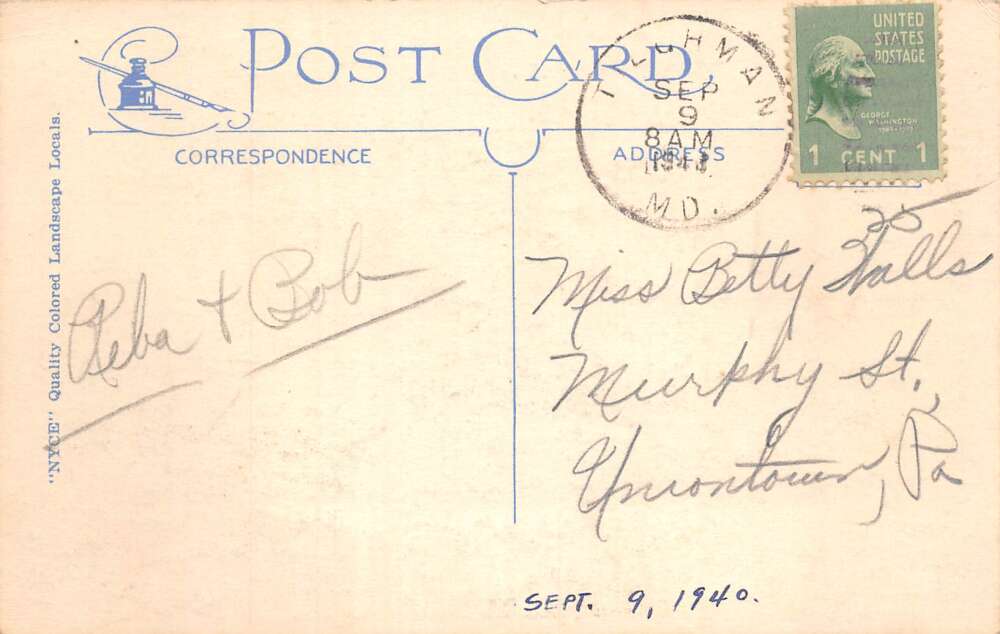 POST CARD
CORRESPONDENCE
ADDRESS
"NYCE" Quality Colored Landscape Locals.
SEP
9
8 AM
M D .
UNITED
STATES
POSTAGE
GEORGE
WASHINGTON
1 CENT 1
25
Reba + Bob
Miss Betty Walls
Murphy St.,
Uniontown, Pa
SEPT. 9, 1940.